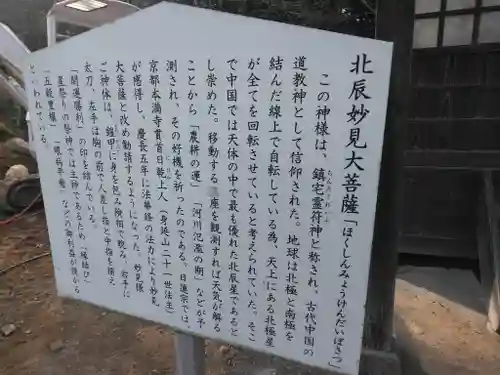 北辰妙見大菩薩「ほくしんみょうけんだいぼさつ」
この神様は、鎮宅霊符神と称され、古代中国の
道教神として信仰された。地球は北極と南極を
結んだ線上で自転している為、天上にある北極星
が全てを回転させていると考えられていた。そこ
で中国では天体の中で最も優れた北辰星であると
し崇めた。移動する 星を観測すれば天気が解る
ことから「農耕の運」「河川氾濫の期」などが予
測され、その好機を祈ったのである。日蓮宗では、
京都本満寺貫首日乾上人(身延山二十一世法主)
が感得し、慶長五年に法華経の法力により妙見
大菩薩と改め勧請するようになった。妙見様
ご神体は、鎧甲に身を包み険相で睨み、右手に
太刀、左手は胸の前で人差し指と中指を揃え
「開運勝利」の印を結んでいる。
星祭りの祭神では主神であるため「縁結び」
「五穀豊穣」「眼病平癒」などの御利益が授かる
といわれている。